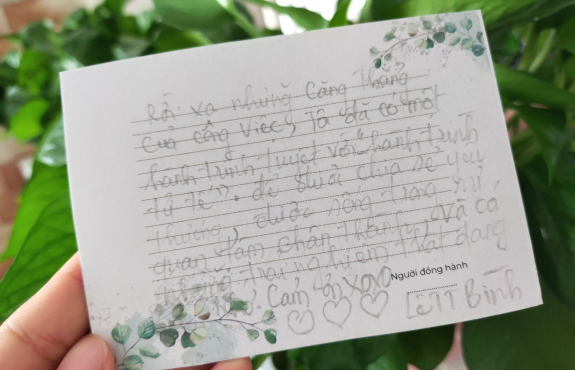 Rời xa những căng thẳng
của công việc, Ta đã có một
hành trình tuyệt vời "hành trình
tử tế". để được chia sẻ yêu
thương, được sống trong sự
quan tâm chân thành, và có
những trải nghiệm thật đáng
Cảm ơn xoxo
Người đồng hành
Bình